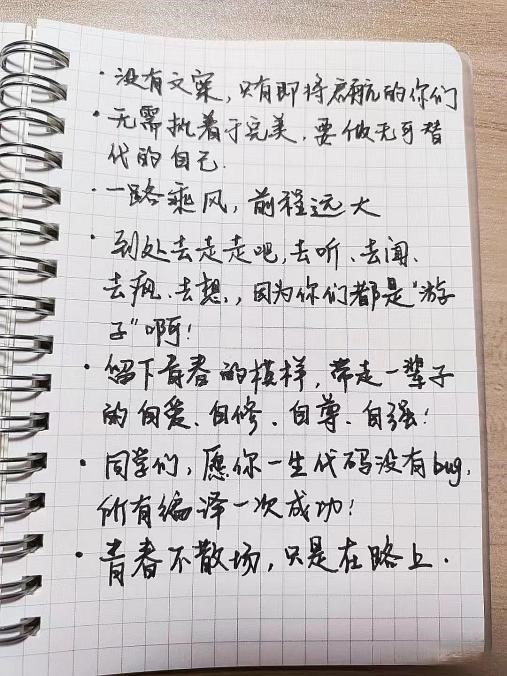 ·没有文案，只有即将启航的你们
·无需执着于完美，要做无可替
代的自己.
·一路乘风，前程远大
·到处去走走吧，去听、去闻、
去疯、去想，因为你们都是“游
子”啊！
·留下青春的模样，带走一辈子
的自爱、自修、自尊、自强！
·同学们，愿你一生代码没有bug，
所有编译一次成功！
·青春不散场，只是在路上.